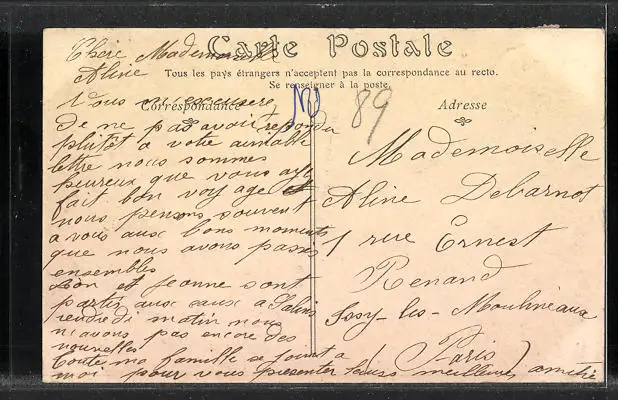 Carte Postale
Tous les pays étrangers n'acceptent pas la correspondance au recto.
Se renseigner à la poste.
Correspondance
Adresse
89
Chère Mademoiselle
Aline
Vous m'excuserez
de ne pas avoir repondu
plutôt a votre aimable
lettre nous sommes
heureux que vous ayez
fait bon voyage et
nous pensons souvent
a vous aux bons moments
que nous avons passés
ensembles
Léon et Jeanne sont
partir aux eaux a Salins
vendredi matin nous
n'avons pas encore des
nouvelles
toute ma famille se joint a
moi pour vous presenter leurs meilleures amitié
Mademoiselle
Aline Debarnot
1 rue Ernest
Renand
Issy-les-Moulineaux
(Paris)